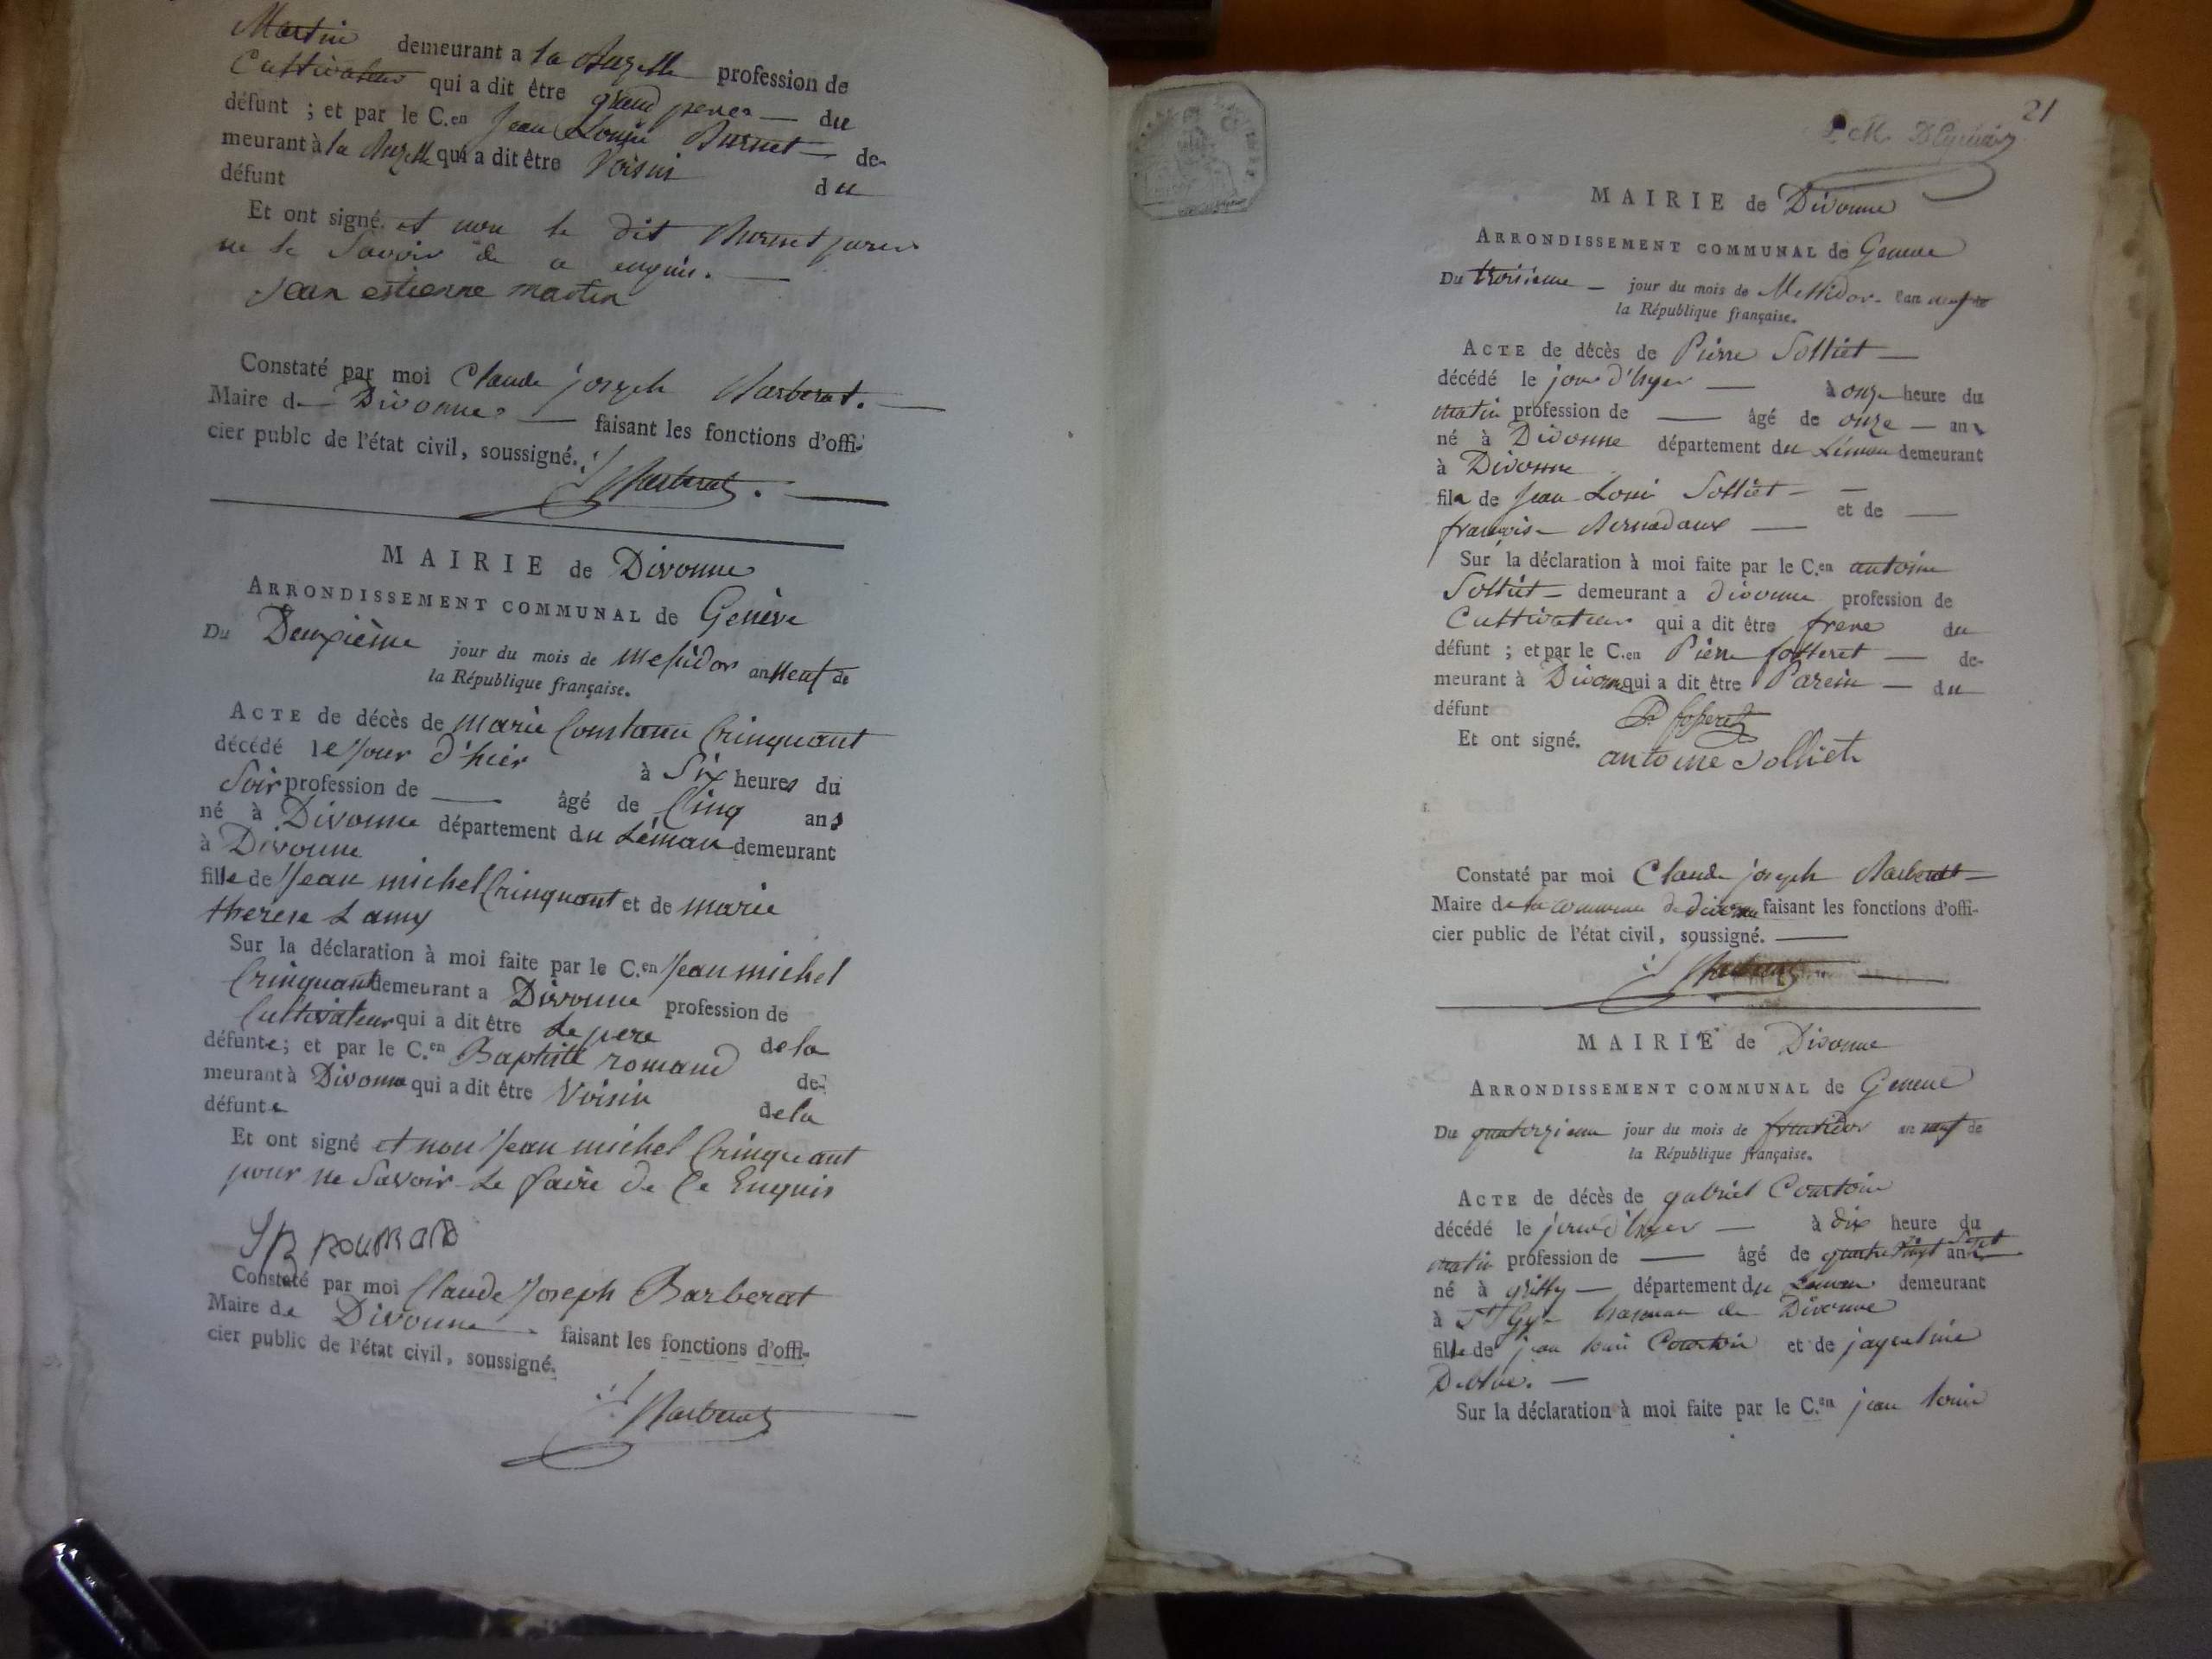 Martin demeurant a la profession de
Cultivateur qui a dit être grand pere — du
défunt ; et par le C.en Jean Louis Burnet — de-
meurant à la qui a dit être Voisin du
défunt
Et ont signé. et non le dit Burnet pour
ne le Savoir de ce enquis. —
jean estienne martin
Constaté par moi Claude joseph Barberat. —
Maire de Divonne — faisant les fonctions d'offi-
cier publc de l'état civil, soussigné.
Barberat.
MAIRIE de Divonne
ARRONDISSEMENT COMMUNAL de Genève
Du Deuxième jour du mois de Messidor an Neuf de
la République française.
ACTE de décès de Marie Constance Crinquant
décédé le Jour d'hier à Six heures du
Soir profession de — âgé de Cinq ans
né à Divonne département du Léman demeurant
à Divonne
fille de Jean michel Crinquant et de marie
therese Lamy
Sur la déclaration à moi faite par le C.en Jean michel
Crinquant demeurant a Divonne profession de
Cultivateur qui a dit être Le pere de la
défunte; et par le C.en Baptiste romand de-
meurant à Divonne qui a dit être Voisin de la
défunte
Et ont signé et non Jean michel Crinquant
pour ne Savoir Le faire de Ce Enquis
Constaté par moi Claude Joseph Barberat
Maire de Divonne faisant les fonctions d'offi-
cier public de l'état civil, soussigné.
Barberat
21
MAIRIE de Divonne
ARRONDISSEMENT COMMUNAL de Geneve
Du troisieme — jour du mois de Messidor - l'an neuf de
la République française.
ACTE de décès de Pierre Solliet —
décédé le jour d'hyer — à onze heure du
matin profession de — âgé de onze — ans
né à Divonne département du Léman demeurant
à Divonne
fils de Jean Loui Solliet — et de —
françoise Bernadaux —
Sur la déclaration à moi faite par le C.en antoine
Solliet — demeurant a divonne profession de
Cultivateur qui a dit être frere du
défunt ; et par le C.en Pierre fosseret — de-
meurant à Divonne qui a dit être Parein — du
défunt
P fosseret
Et ont signé. antoine Solliet
Constaté par moi Claude joseph Barberat —
Maire de la commune de divonne faisant les fonctions d'offi-
cier public de l'état civil, soussigné. —
Barberat
MAIRIE de Divonne
ARRONDISSEMENT COMMUNAL de Geneve
Du quatorzieme jour du mois de fructidor an neuf de
la République française.
ACTE de décès de gabriel Courtois
décédé le jour d'hyer — à dix heure du
matin profession de — âgé de quatre vingt Sept ans
né à grilly — département du Leman demeurant
à St Gix hameau de Divonne
fille de jean loui Courtois et de jaqueline
—
Sur la déclaration à moi faite par le C.en jean louis